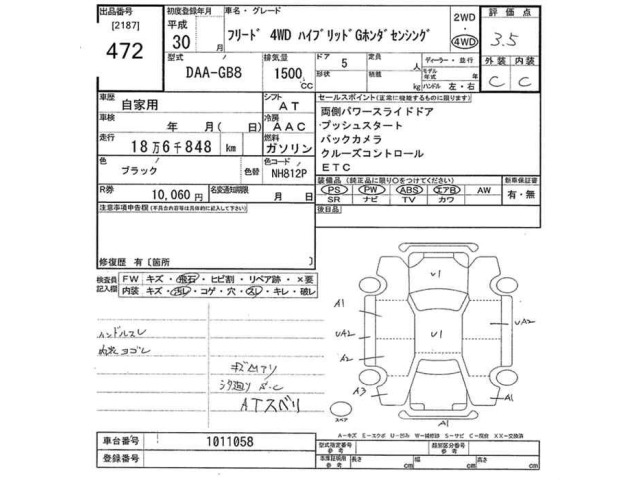 出品番号 初度登録年月 車名・グレード 評価点
[2187] 平成
472 30 月 フリード 4WD ハイブリッドGホンダセンシング 2WD・4WD 3.5
型式 排気量 ドア 5 定員 人 ディーラー・並行 外装 内装
DAA-GB8 1500 CC 形状 積載 kg モデル年式 年 ハンドル 左・右 C C
車歴 シフト セールスポイント(正常に機能するものに限ります)
自家用 AT
車検 年 月( 日) 冷房 AAC
走行 18万6千848 km 燃料 ガソリン
両側パワースライドドア
プッシュスタート
バックカメラ
クルーズコントロール
ETC
色 ブラック 色替 色コード NH812P
R券 10,060円 名変通知期限 月 日
装備品(純正品に限り○をつけてください) 新車保証書
PS PW ABS エアB AW 有・無
SR ナビ TV カワ
注意事項申告欄 後日品
修復歴 有〔箇所 〕
検査員記入欄 FW キズ・飛石・ヒビ割・リペア跡・×要
内装 キズ・汚レ・コゲ・穴・スレ・キレ・破レ
ハンドルスレ
内装ヨゴレ
キズ凹アリ
ATスベリ
U1
A1
UA2 U1 UA2
A2
A3 A1
スペア A1
A−キズ E−エクボ U−凹み W−補修跡 S−サビ C−腐食 XX−交換済
車台番号 1011058
登録番号
型式指定番号 参考 類別区分番号 参考
車庫証明用 参考 長さ cm 幅 cm 高さ cm